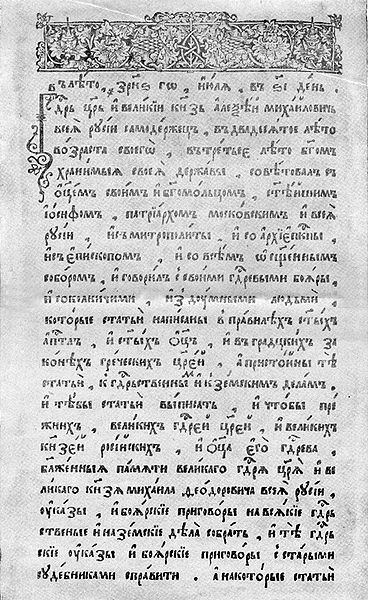 въ лѣто , ҂зрн҃ѕ го , і҆юля , въ ѕ҃і день .
Гдрь црь и҆ великіи кнзь алеѯѣи михаиловичь
всеѧ руси самодержецъ , въ двадесятое лѣто
возраста своегѡ , въ третьее лѣто бг҃омъ
хранимыя своеѧ державы , совѣтовалъ съ
о҆ц҃емъ своимъ и҆ бг҃омольцомъ , ст҃ѣишимъ
і҆осифомъ , патриархомъ московскимъ и҆ всеѧ
русіи , и҆ съ митрополиты , и҆ со а҆рхіепкпы
и҆ съ е҆пископомъ , и҆ со всѣмъ ѡ҆сщ҃еннымъ
соборомъ , и҆ говорилъ съ своими гдревыми боѧры ,
и҆ сокольничими , и҆ з думными людьми ,
которые статьи написаны в правилѣхъ ст҃ыхъ
а҆птлъ , и҆ ст҃ыхъ ѻ҆ц҃ъ , и҆ въ градцкихъ за
конѣхъ греческихъ цр҃еи , а҆ пристоины тѣ
статьи , к гдрьственнымъ и҆ к земскимъ дѣламъ ,
и҆ тѣ бы статьи выписать , и҆ чтобы пре
жнихъ , великихъ гдреи цр҃еи , и҆ великихъ
кнзеи росіискихъ , и҆ ѻ҆ц҃а е҆го гдрева ,
блаженныя памяти великаго гдря цр҃я и҆ ве
ликаго кнзя михаила ѳеодоровича всея русіи ,
ѹ҆казы , и҆ боѧрскіе приговоры на всякіе гдрь
ственые и҆ на земскіе дѣла собрать , и҆ тѣ гдрь
скіе ѹ҆казы и҆ боѧрскіе приговоры с старыми
сѹдебниками справити . а҆ на которые статьи